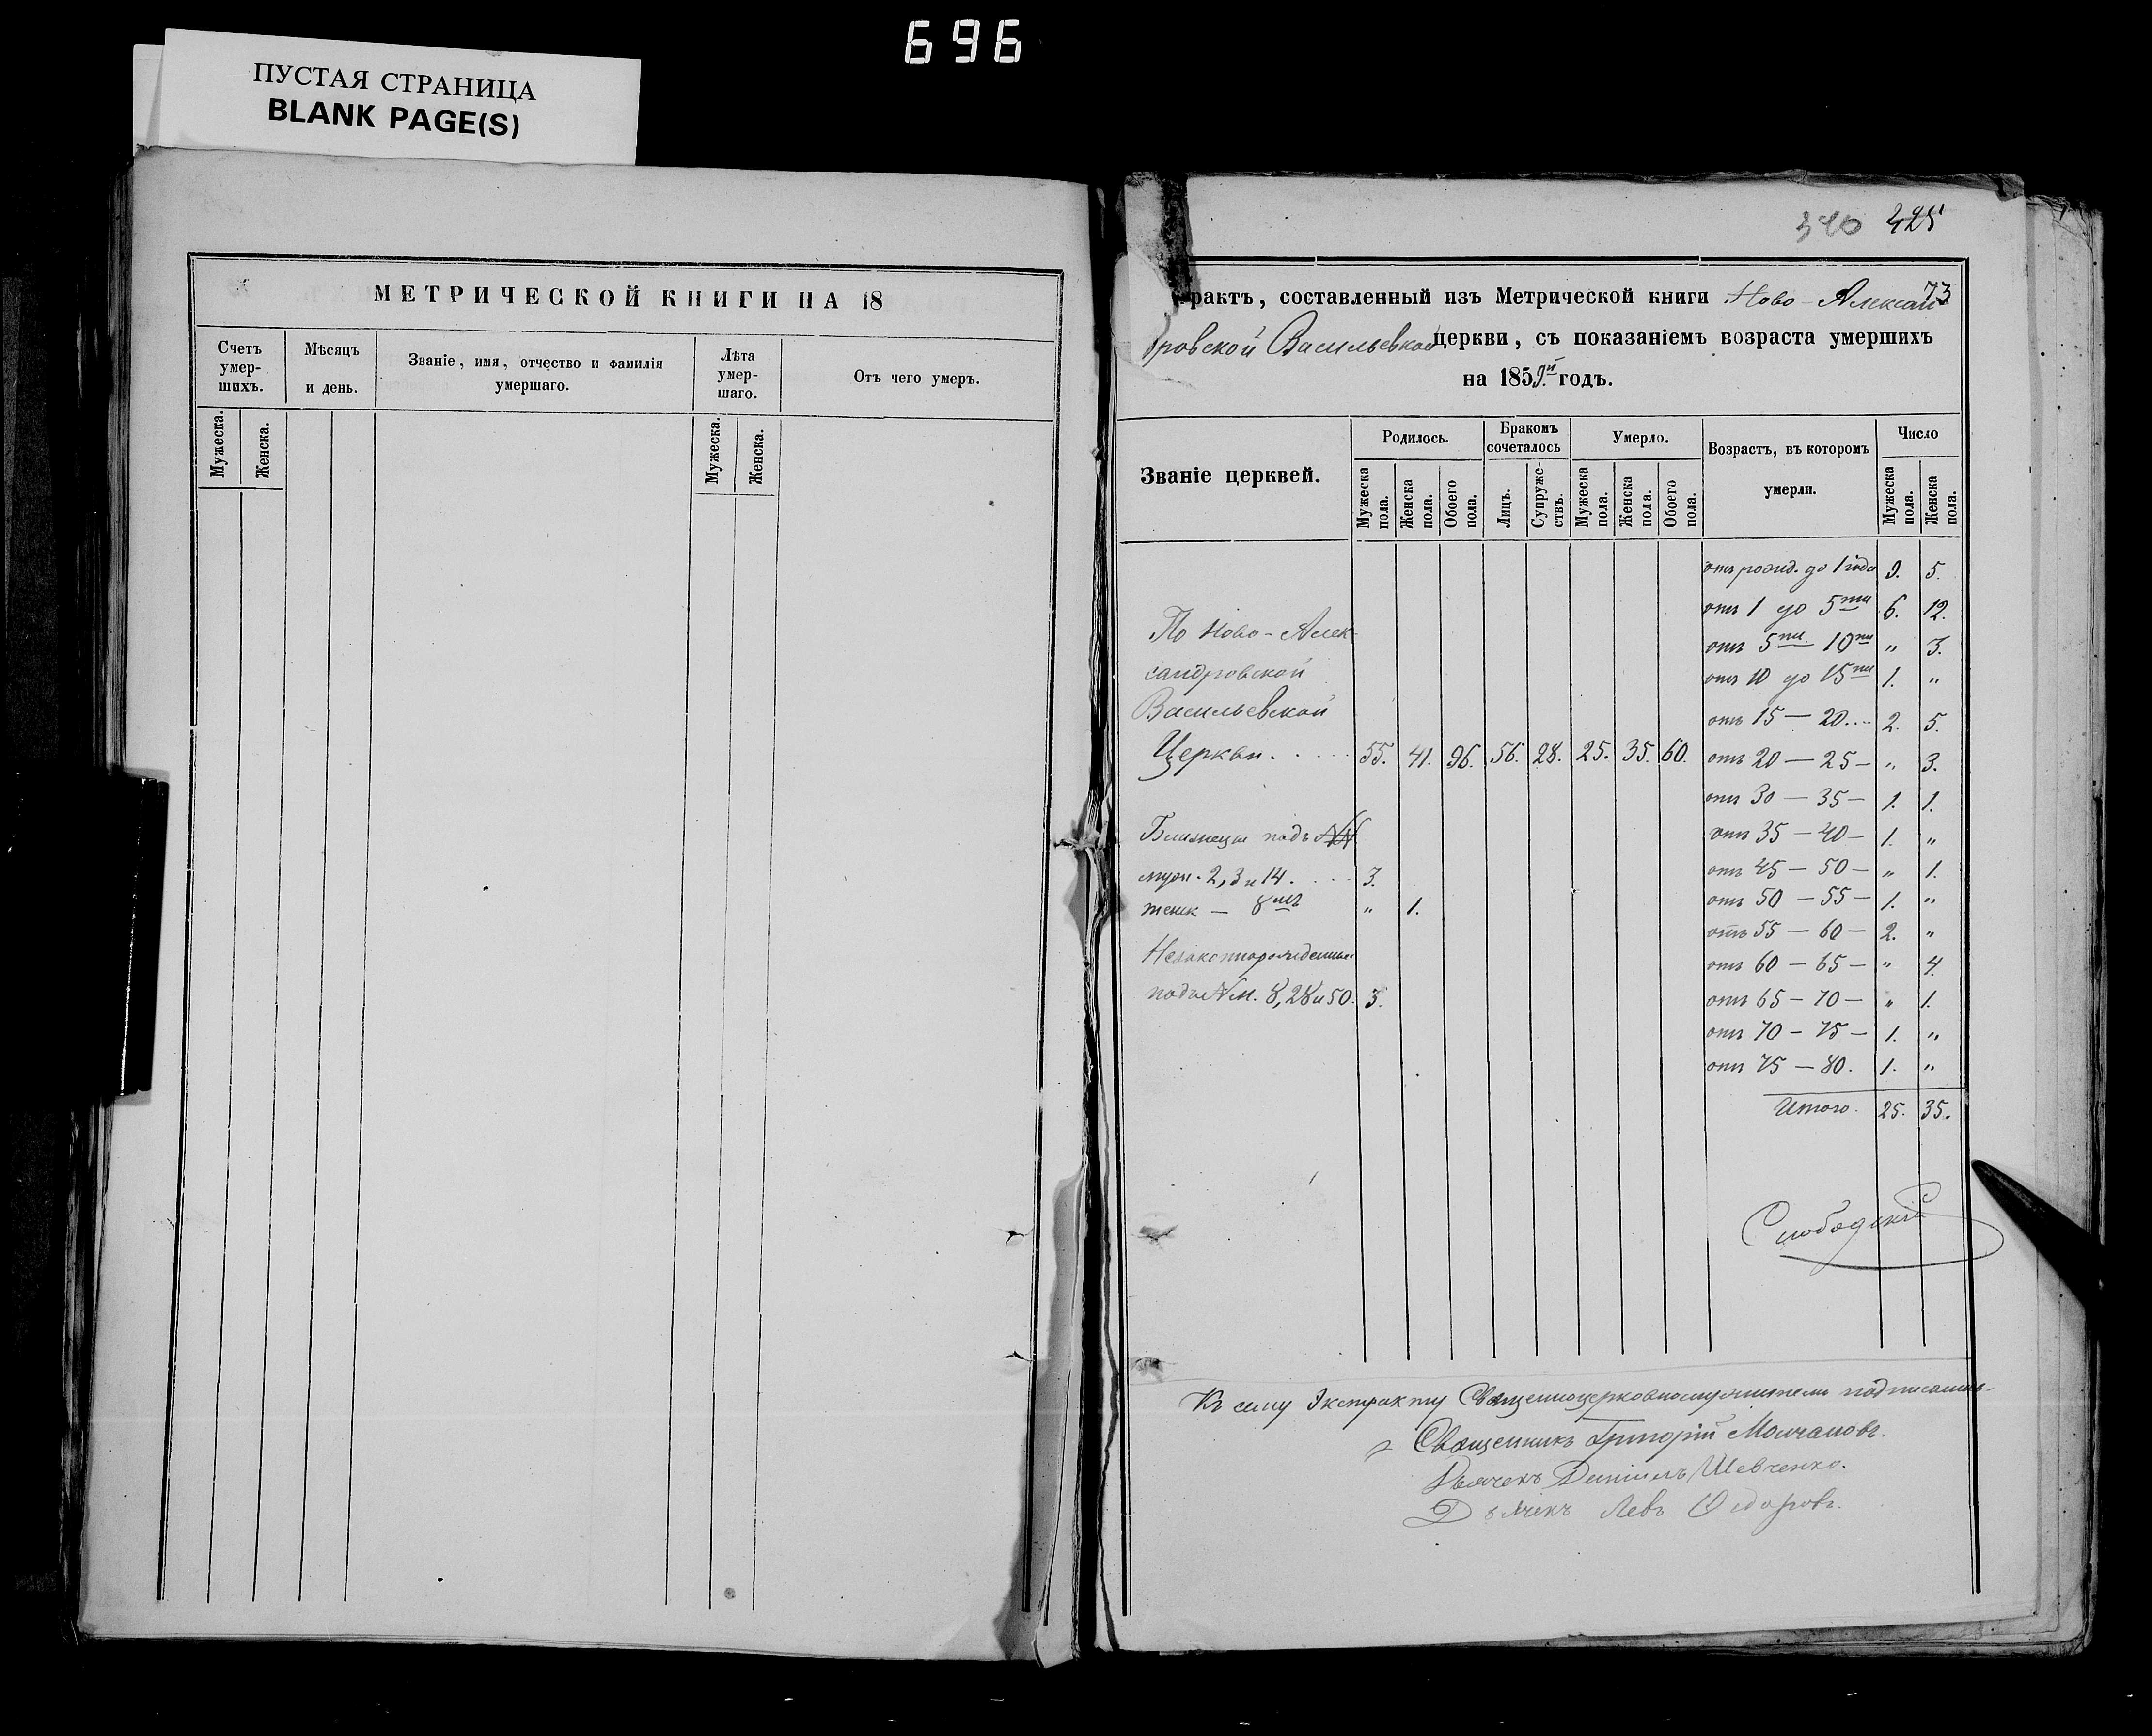 696
ПУСТАЯ СТРАНИЦА
BLANK PAGE(S)
МЕТРИЧЕСКОЙ КНИГИ НА 18
Счетъ умер-шихъ.
Мѣсяцъ и день.
Званіе, имя, отчество и фамилія умершаго.
Лѣта умер-шаго.
Отъ чего умеръ.
Мужеска. Женска. Мужеска. Женска.
340 425
73
рактъ, составленный изъ Метрической книги Ново-Алексан
дровской Васильевской церкви, съ показаніемъ возраста умершихъ
на 1859й годъ.
Званіе церквей.
Родилось.
Бракомъ сочеталось
Умерло.
Возрастъ, въ которомъ умерли.
Число
Мужеска пола. Женска пола. Обоего пола. Лицъ. Супруже-ствъ. Мужеска пола. Женска пола. Обоего пола. Мужеска пола. Женска пола.
отъ рожд. до 1 года 9. 5.
отъ 1 до 5ти 6. 12.
По Ново-Алек-
отъ 5ти 10ти " 3.
сандровской
отъ 10 до 15ти 1. "
Васильевской
отъ 15 — 20.... 2. 5.
Церкви. . . . . 55. 41. 96. 56. 28. 25. 35. 60.
отъ 20 — 25 — " 3.
отъ 30 — 35 — 1. 1.
Близнецы подъ NN
отъ 35 — 40 — 1. "
муж. 2, 3 и 14. . . . 3.
отъ 45 — 50 — " 1.
женск — 8мъ " 1.
отъ 50 — 55 — 1. "
отъ 55 — 60 — 2. "
Незаконнорожденные
отъ 60 — 65 — " 4.
подъ N м. 8, 28 и 50. 3.
отъ 65 — 70 — " 1.
отъ 70 — 75 — 1. "
отъ 75 — 80. 1. "
Итого. 25. 35.
Слободскій
Къ сему Экстракту Священноцерковнослужители подписались-
Священникъ Григорій Молчановъ.
Дьячекъ Даніилъ Шевченко.
Дьячекъ Левъ Ѳедоровъ.